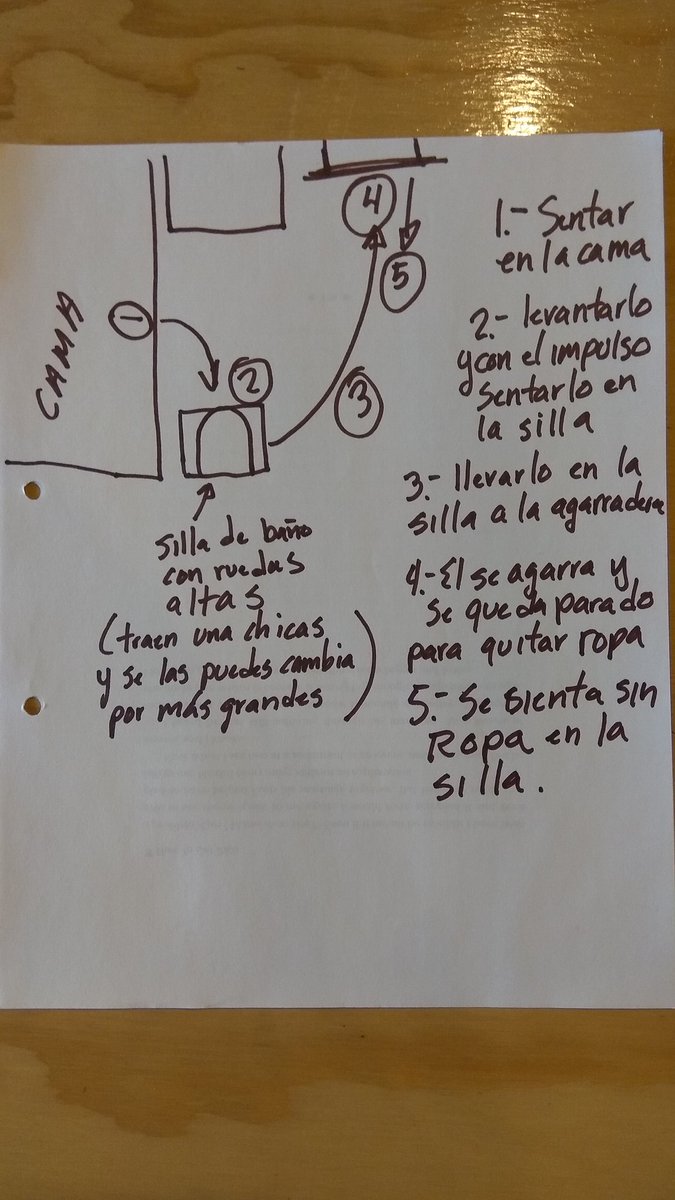 4
5
CAMA
1
2
3
silla de baño
con ruedas
altas
(traen una chicas
y se las puedes cambia
por más grandes)
1.- Sentar
en la cama
2.- levantarlo
y con el impulso
sentarlo en
la silla
3.- llevarlo en la
silla a la agarradera
4.- El se agarra y
se queda parado
para quitar ropa
5.- Se sienta sin
Ropa en la
silla.